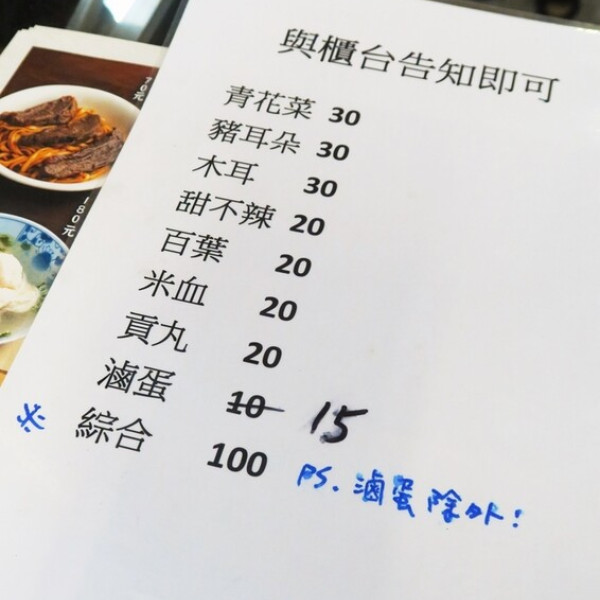 與櫃台告知即可
青花菜 30
豬耳朵 30
木耳 30
甜不辣 20
百葉 20
米血 20
貢丸 20
滷蛋 10 15
※ 綜合 100 PS. 滷蛋除外!
70元
180元